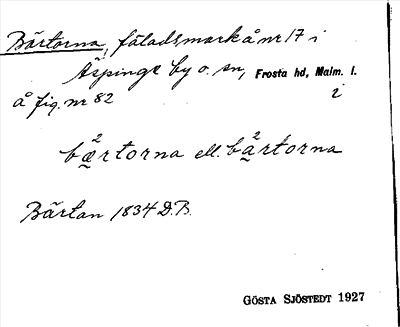 Bärtorna, fäladsmark å nr 17 i
Äspinge by o. sn, Frosta hd, Malm. l.
å fig. nr 82 i
bæ²rtorna ell. ba²rtorna
Bärtan 1834 D.B.
GÖSTA SJÖSTEDT 1927